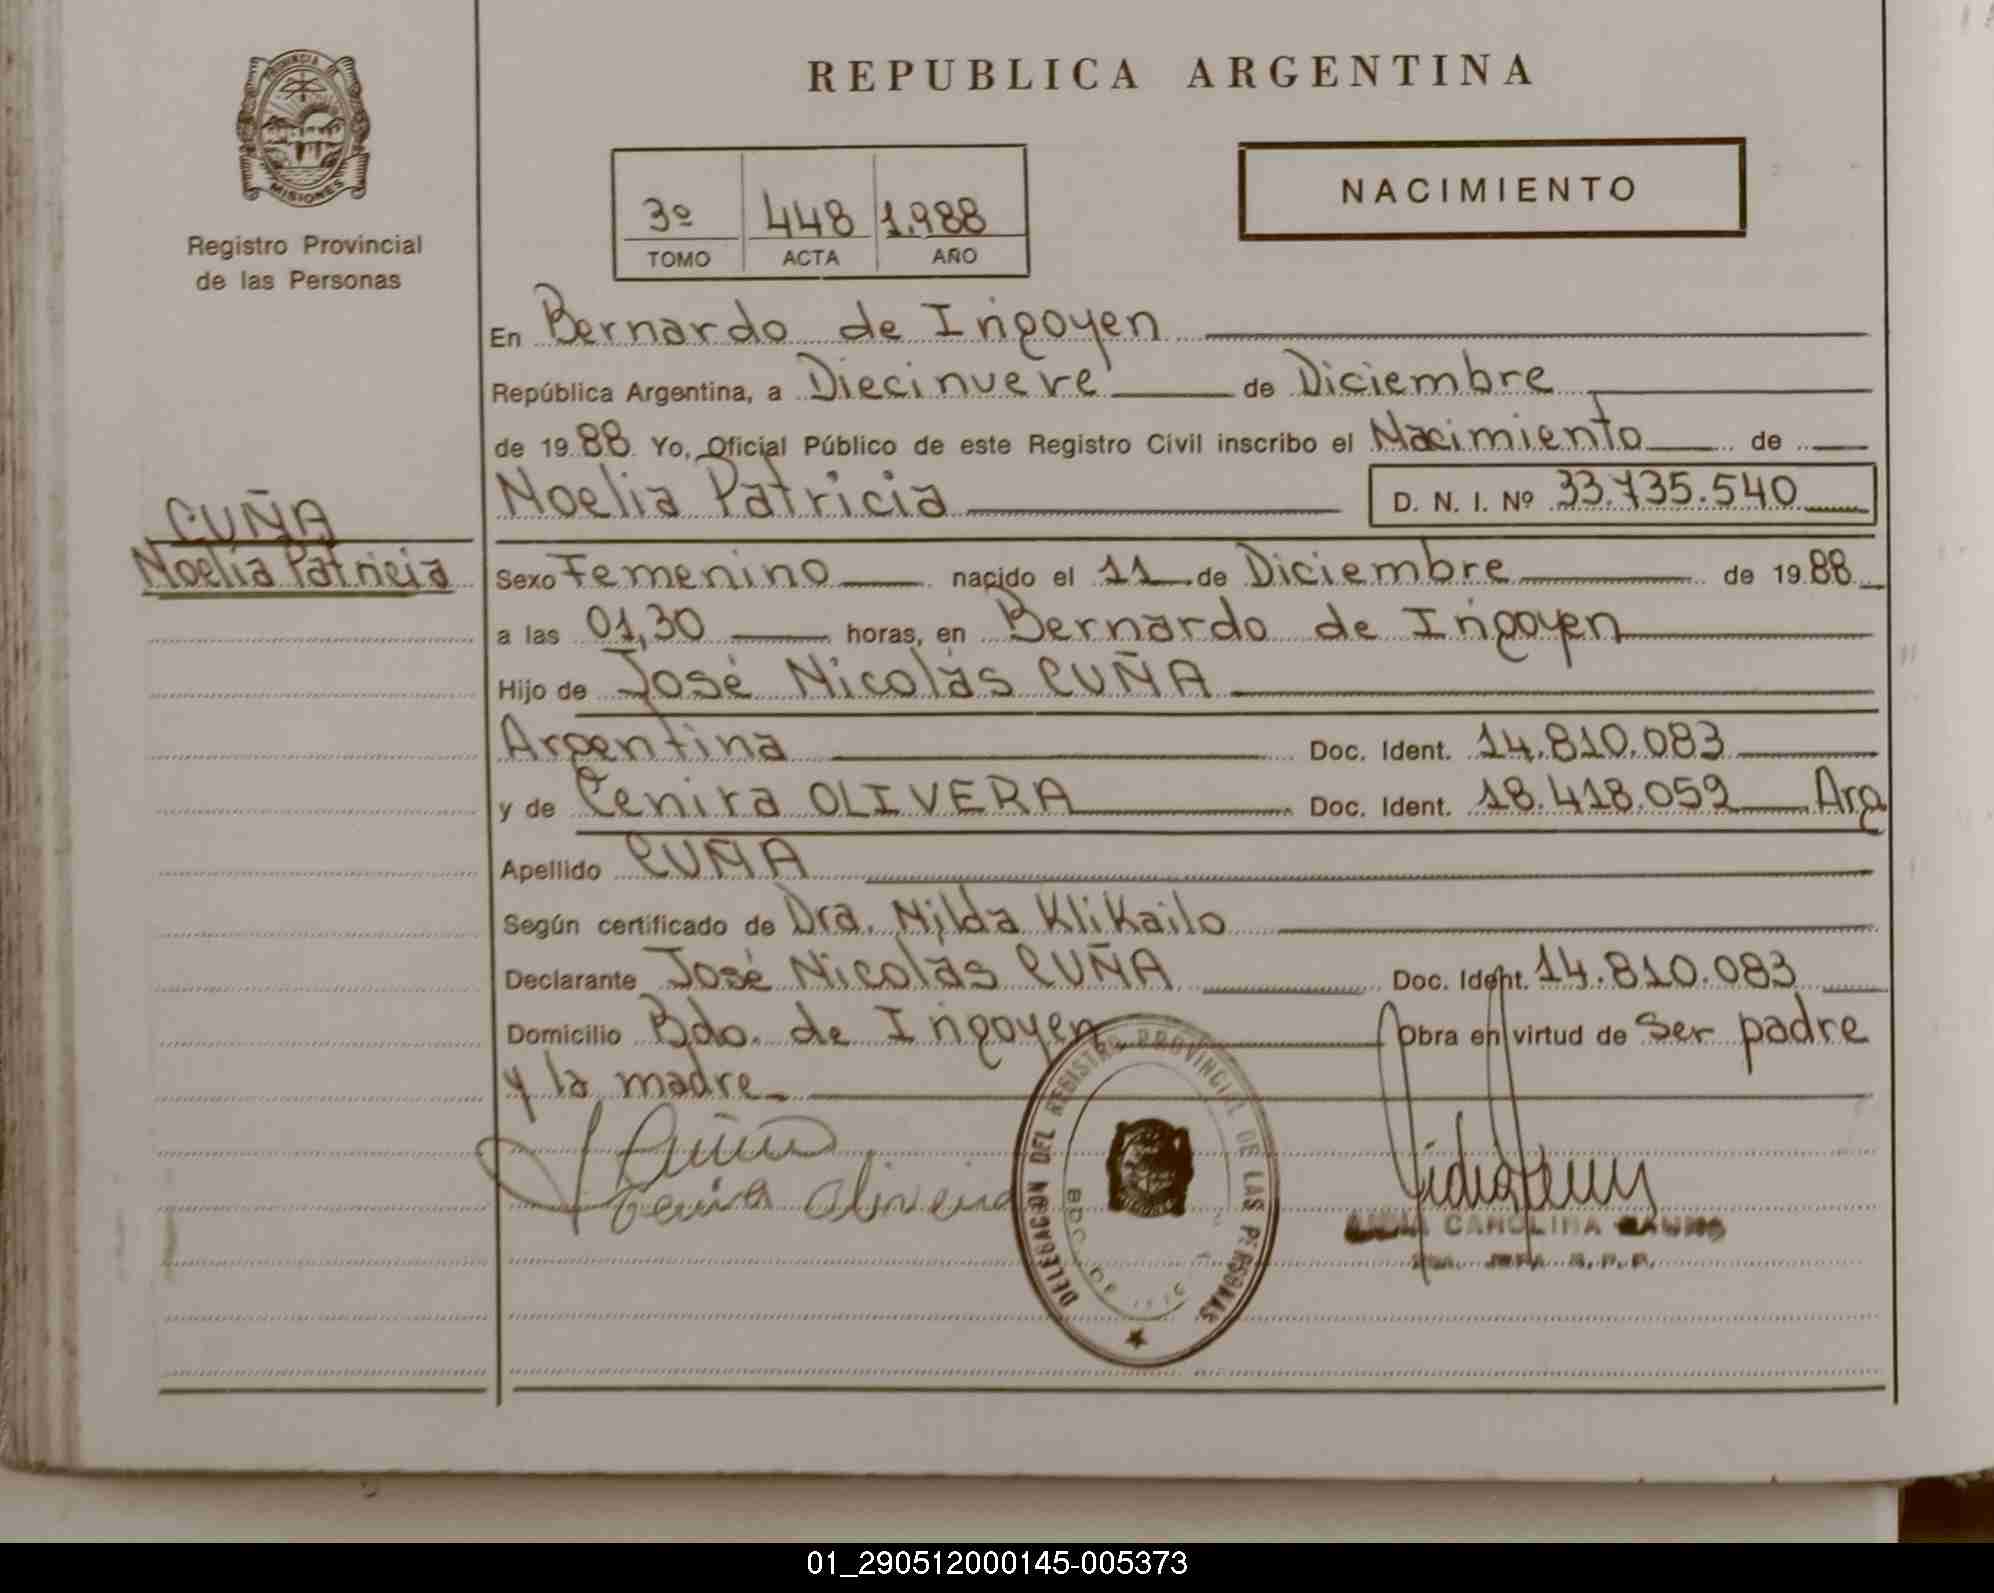 PROVINCIA DE
MISIONES
Registro Provincial
de las Personas
REPUBLICA ARGENTINA
3º 448 1.988
TOMO ACTA AÑO
NACIMIENTO
En Bernardo de Irigoyen
República Argentina, a Diecinueve de Diciembre
de 1988 Yo, Oficial Público de este Registro Civil inscribo el Nacimiento de
Noelia Patricia D. N. I. Nº 33.735.540
CUÑA
Noelia Patricia
Sexo Femenino nacido el 11 de Diciembre de 1988
a las 01,30 horas, en Bernardo de Irigoyen
Hijo de José Nicolás CUÑA
Argentina Doc. Ident. 14.810.083
y de Cenira OLIVERA Doc. Ident. 18.418.059 Arg
Apellido CUÑA
Según certificado de Dra. Nilda Klikailo
Declarante José Nicolás CUÑA Doc. Ident. 14.810.083
Domicilio Bdo. de Irigoyen Obra en virtud de Ser padre
y la madre
Cenira Oliveira
DELEGACION DEL REGISTRO PROVINCIAL DE LAS PERSONAS
BDO. DE
CAROLINA
01_290512000145-005373